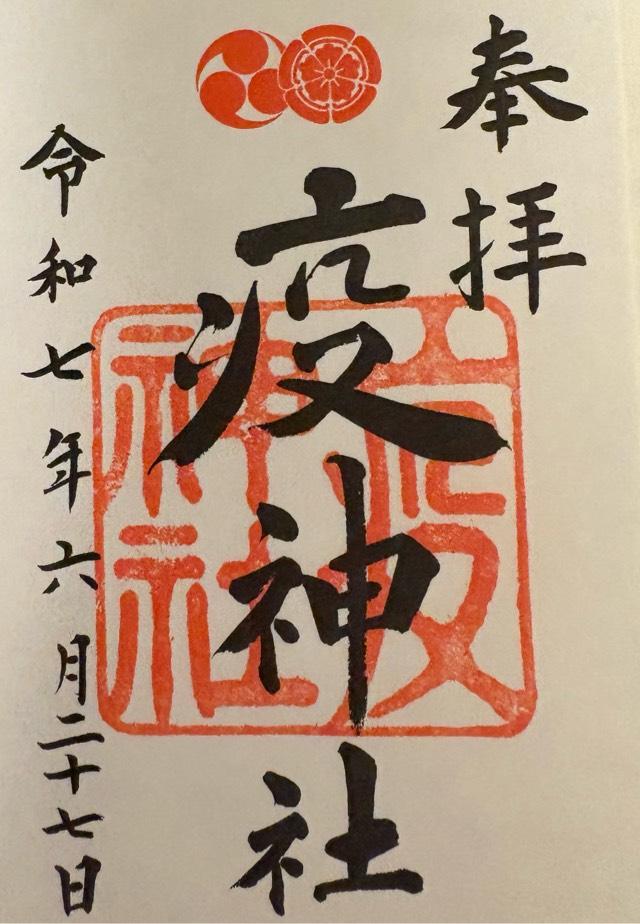 奉拝
疫神社
疫神社
令和七年六月二十七日